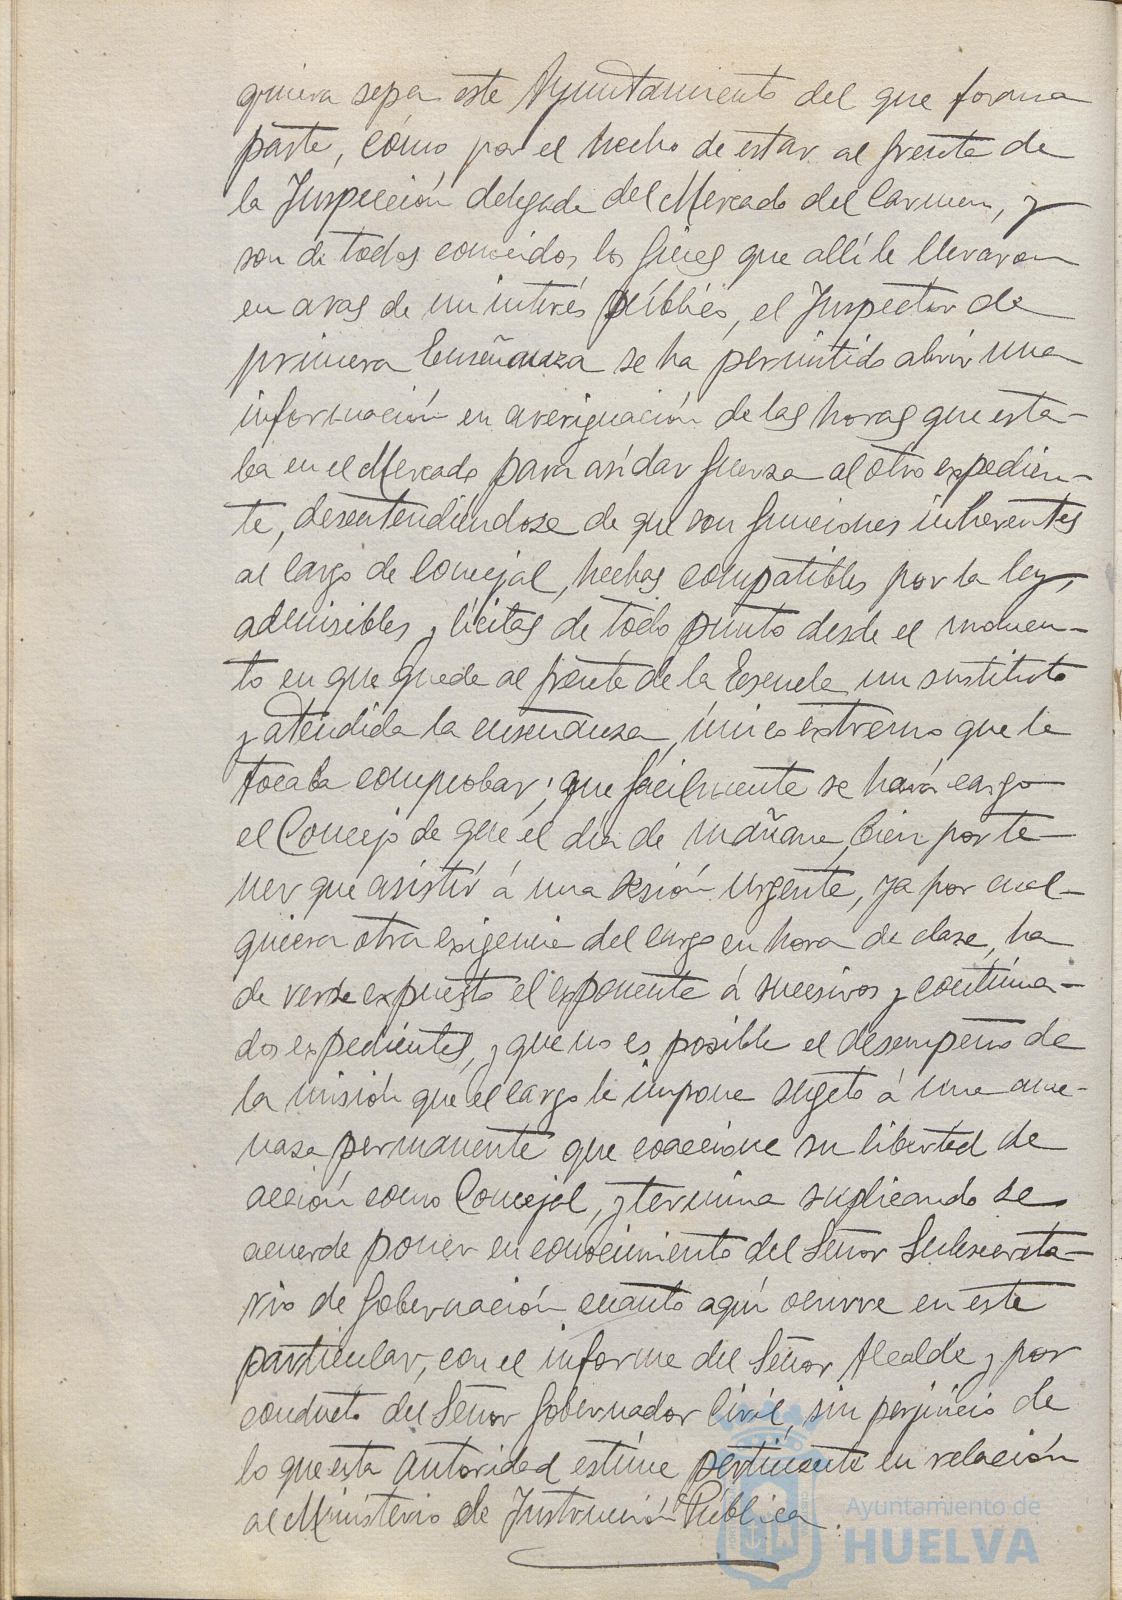 quiera sepa este Ayuntamiento del que forma
parte, cómo por el hecho de estar al frente de
la Inspección delegada del Mercado del Carmen, y
son de todos conocidos los fines que allí le llevaron
en aras de un interés público, el Inspector de
primera Enseñanza se ha permitido abrir una
información en averiguación de las horas que esta-
ba en el Mercado para así dar fuerza al otro expedien-
te, desentendiéndose de que son funciones inherentes
al cargo de Concejal, hechas compatibles por la ley,
admisibles y lícitas de todo punto desde el momen-
to en que quede al frente de la Escuela un sustituto
y atendida la enseñanza, único extremo que le
tocaba comprobar; que fácilmente se hará cargo
el Concejo de que el día de mañana, bien por te-
ner que asistir á una sesión urgente, ya por cual-
quiera otra exigencia del cargo en hora de clase, ha
de verse expuesto el exponente á sucesivos y continua-
dos expedientes, y que no es posible el desempeño de
la misión que el cargo le impone sugeto á una ame-
naza permanente que coaccione su libertad de
acción como Concejal, y termina suplicando se
acuerde poner en conocimiento del Señor Subsecreta-
rio de Gobernación cuanto aquí ocurre en este
particular, con el informe del Señor Alcalde y por
conducto del Señor Gobernador Civil, sin perjuicio de
lo que esta Autoridad estime pertinente en relación
al Ministerio de Instrucción Pública.
Ayuntamiento de
HUELVA